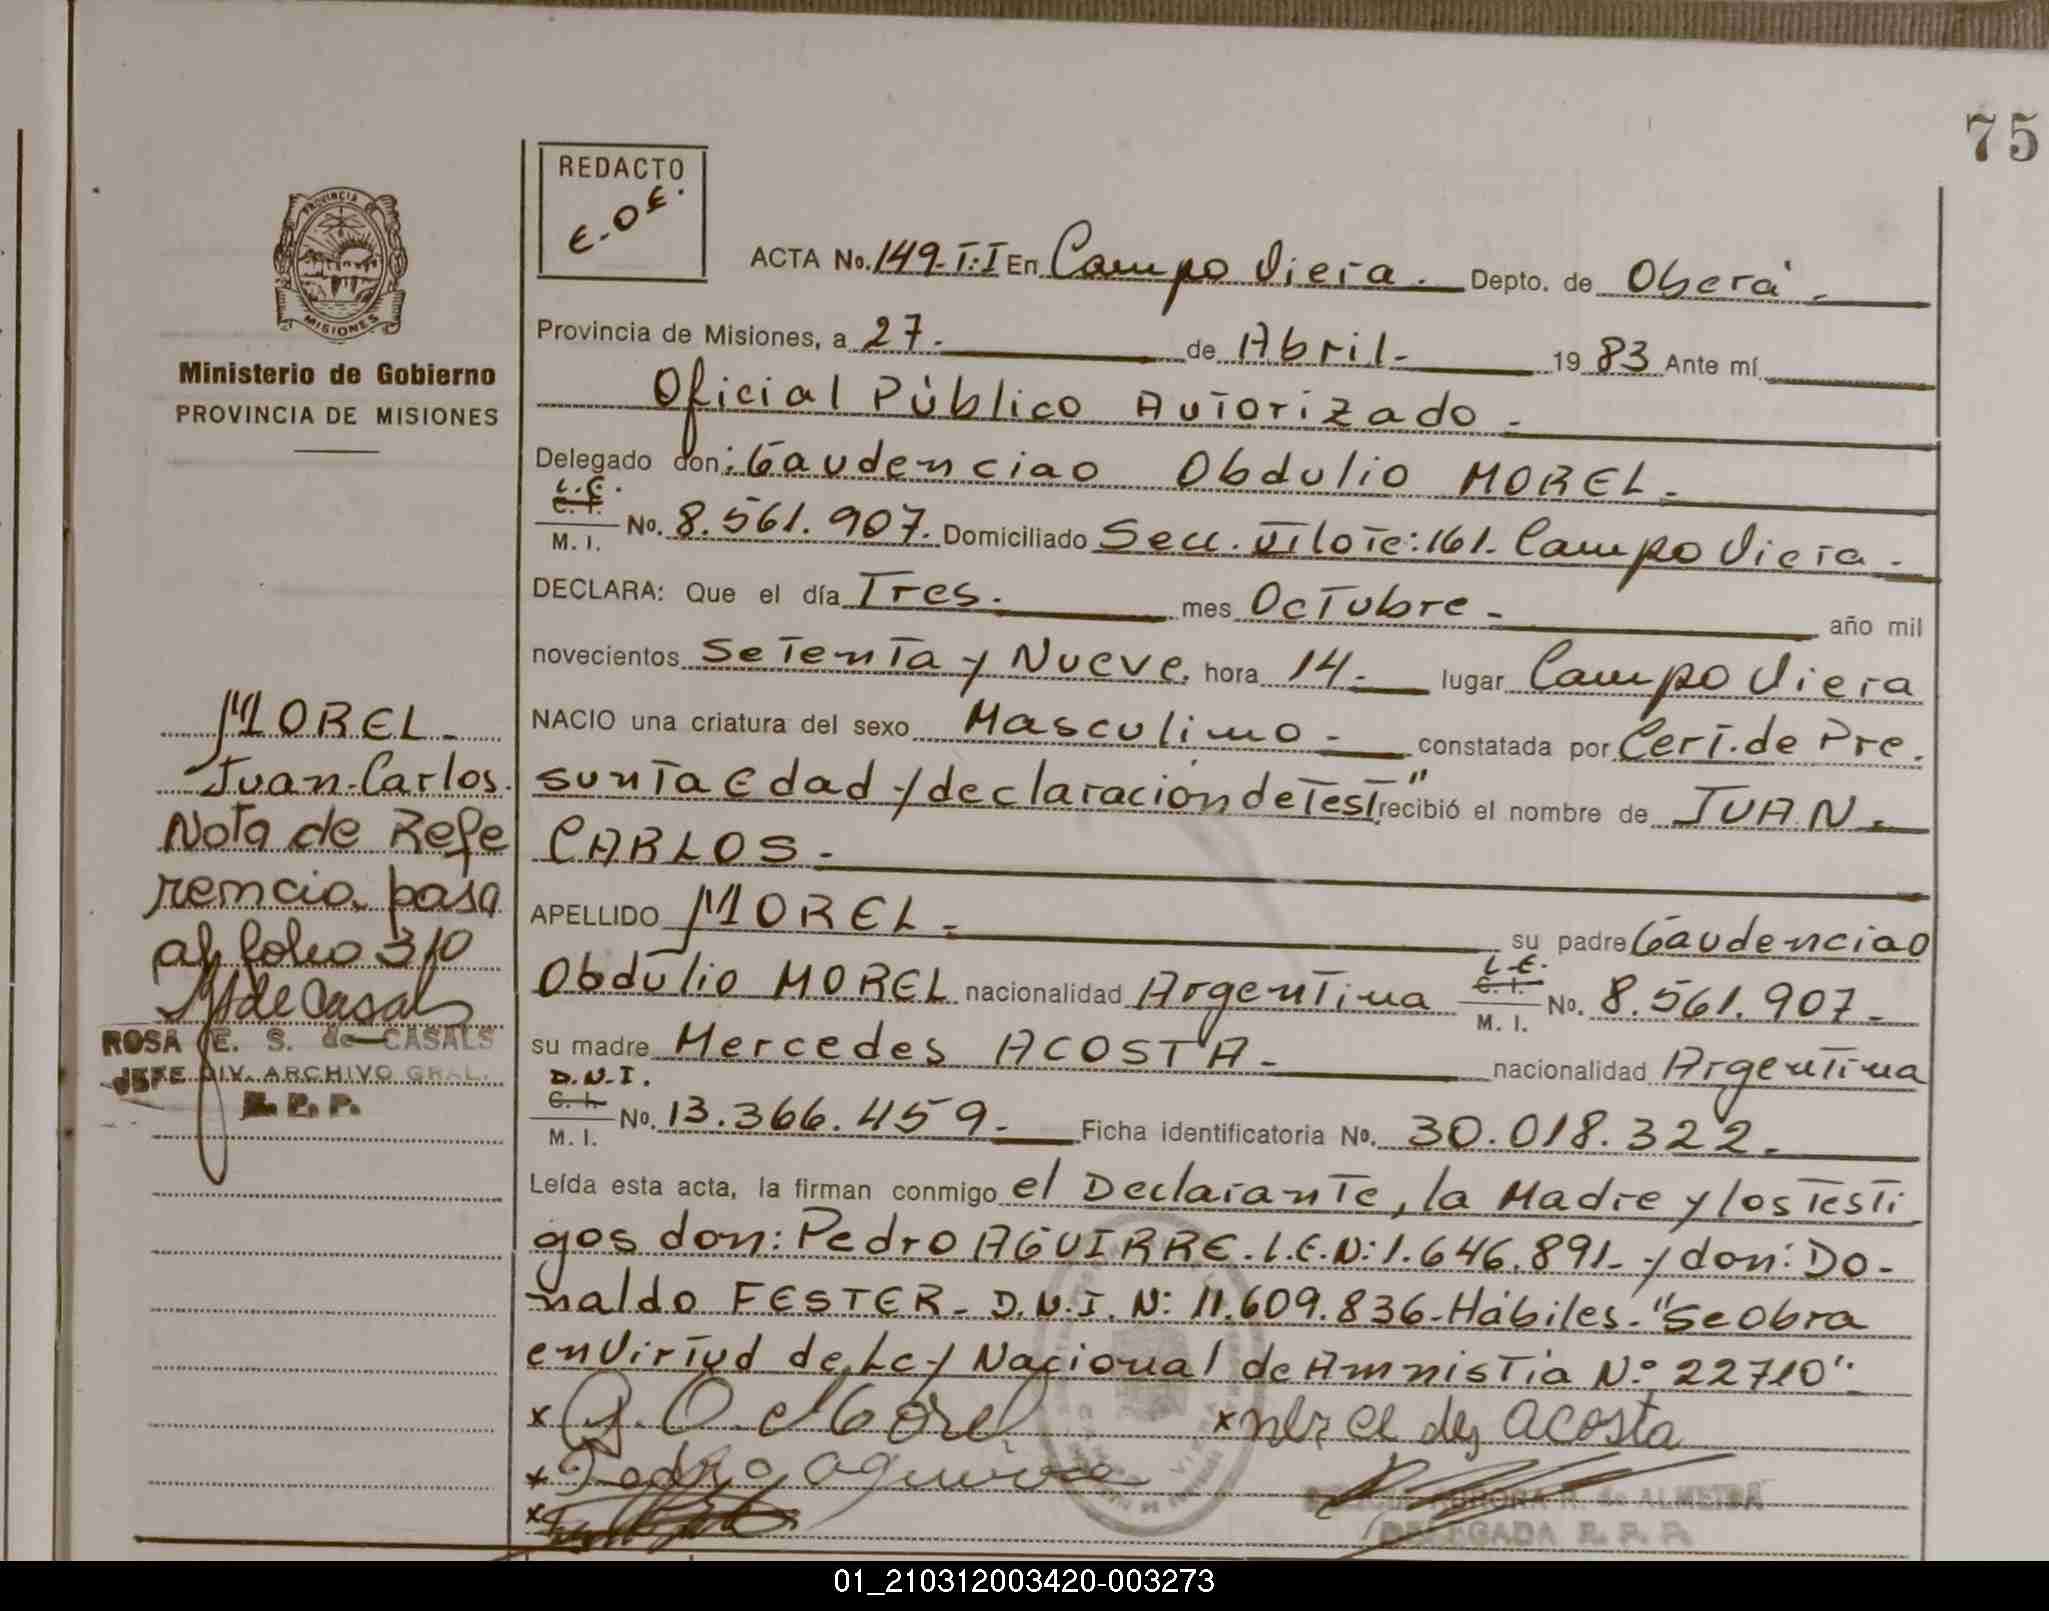 75
REDACTO
E.O.E.
PROVINCIA DE
MISIONES
Ministerio de Gobierno
PROVINCIA DE MISIONES
ACTA No. 149-T:I En Campo Viera. Depto. de Oberá.
Provincia de Misiones, a 27. de Abril. 1983 Ante mí
Oficial Público Autorizado.
Delegado don: Gaudenciao Obdulio MOREL.
L.E.
C. I.
M. I. No. 8.561.907. Domiciliado Secc. VI lote: 161. Campo Viera.
DECLARA: Que el día Tres. mes Octubre. año mil
novecientos Setenta y Nueve. hora 14. lugar Campo Viera
NACIO una criatura del sexo Masculino. constatada por Cert. de Pre.
sunta Edad y declaración de Test" recibió el nombre de JUAN.
CARLOS.
APELLIDO MOREL. su padre Gaudenciao
Obdulio MOREL nacionalidad Argentina L.E. C. I. M. I. No. 8.561.907.
su madre Mercedes ACOSTA. nacionalidad Argentina
D.N.I.
C. I.
M. I. No. 13.366.459. Ficha identificatoria No. 30.018.322.
Leída esta acta, la firman conmigo el Declarante, la Madre y los Testi
gos don: Pedro AGUIRRE. L.E.N: 1.646.891. y don: Do-
naldo FESTER. D.N.I. N: 11.609.836. Hábiles. "Se obra
en Virtud de Ley Nacional de Amnistia N° 22710".
x G. O. Morel x Merce des acosta
x Pedro aguirre
x
AURORA R. de ALMEIDA
DELEGADA R. P. P.
MOREL.
Juan Carlos.
Nota de Refe
rencia pasa
al folio 310
M de Casals
ROSA E. S. de CASALS
JEFE DIV. ARCHIVO GRAL.
R. P. P.
01_210312003420-003273